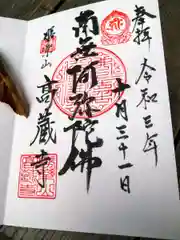 奉拝
令和三年
十月三十一日
南無阿弥陀佛
高蔵寺